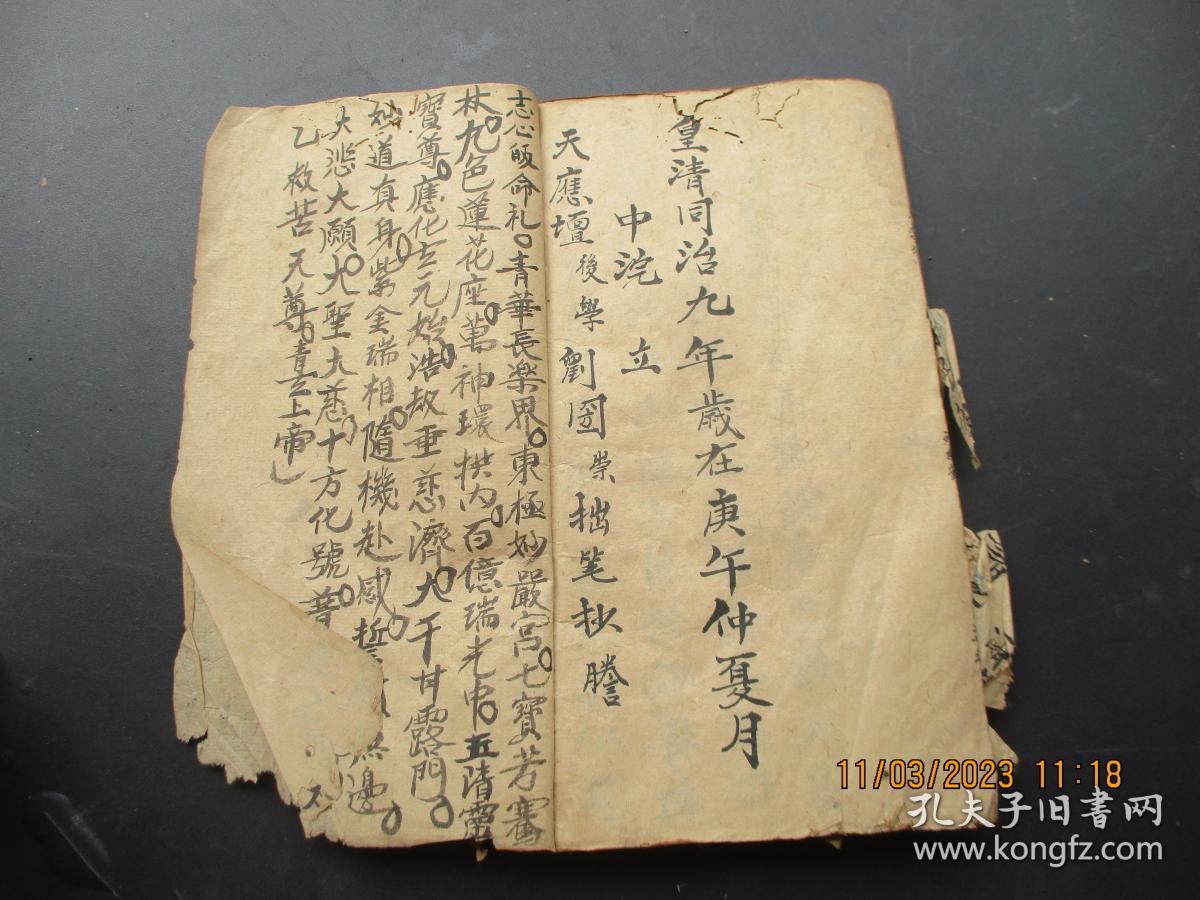 皇清同治九年歲在庚午仲夏月
中浣 立
天應壇後學劉崇拙笔抄謄
志心皈命礼。青華長楽界。東極妙嚴宮。七寶芳騫
林。九色蓮花座。萬神環拱内。百億瑞光中。五清靈
寶尊。應化玄元始。浩劫垂慈濟。大千甘露門。
妙道真身。紫金瑞相。隨機赴感。誓無邊。
大悲大願。大聖大慈。十方化號。普 太
乙救苦天尊。青玄上帝
11/03/2023 11:18
孔夫子旧書网
www.kongfz.com